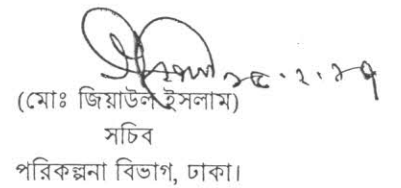 ১৫.২.১৭
(মোঃ জিয়াউল ইসলাম)
সচিব
পরিকল্পনা বিভাগ, ঢাকা।